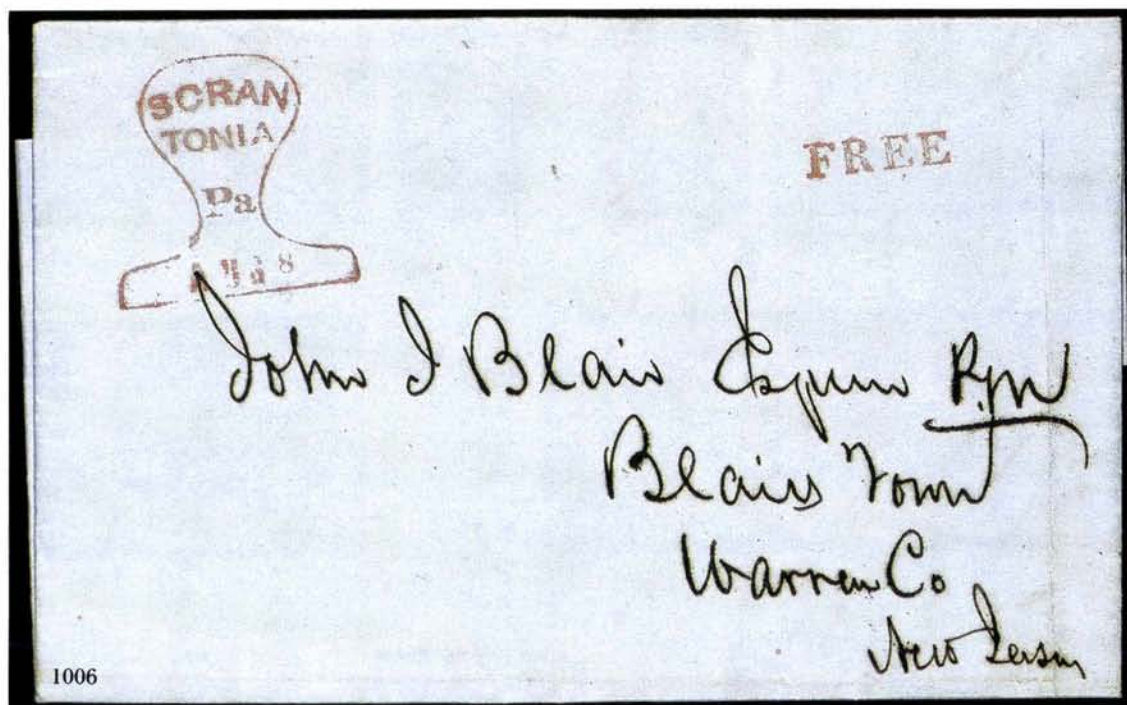 SCRAN
TONIA
Pa
8
FREE
John I Blair Esquire P.M
Blairs Town
Warren Co
New Jersey
1006